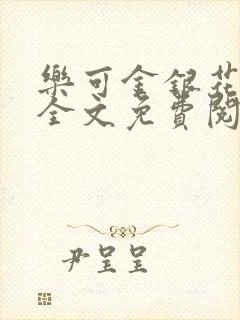 樂可金銀花
全文免費閱
尹呈呈